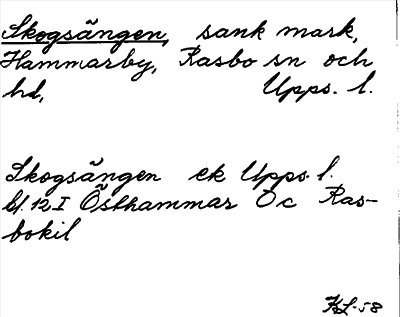 Skogsängen, sank mark,
Hammarby, Rasbo sn och
hd, Upps. l.
Skogsängen ek Upps. l.
bl. 12 I Östhammar Öc Ras-
bokil
KL-58